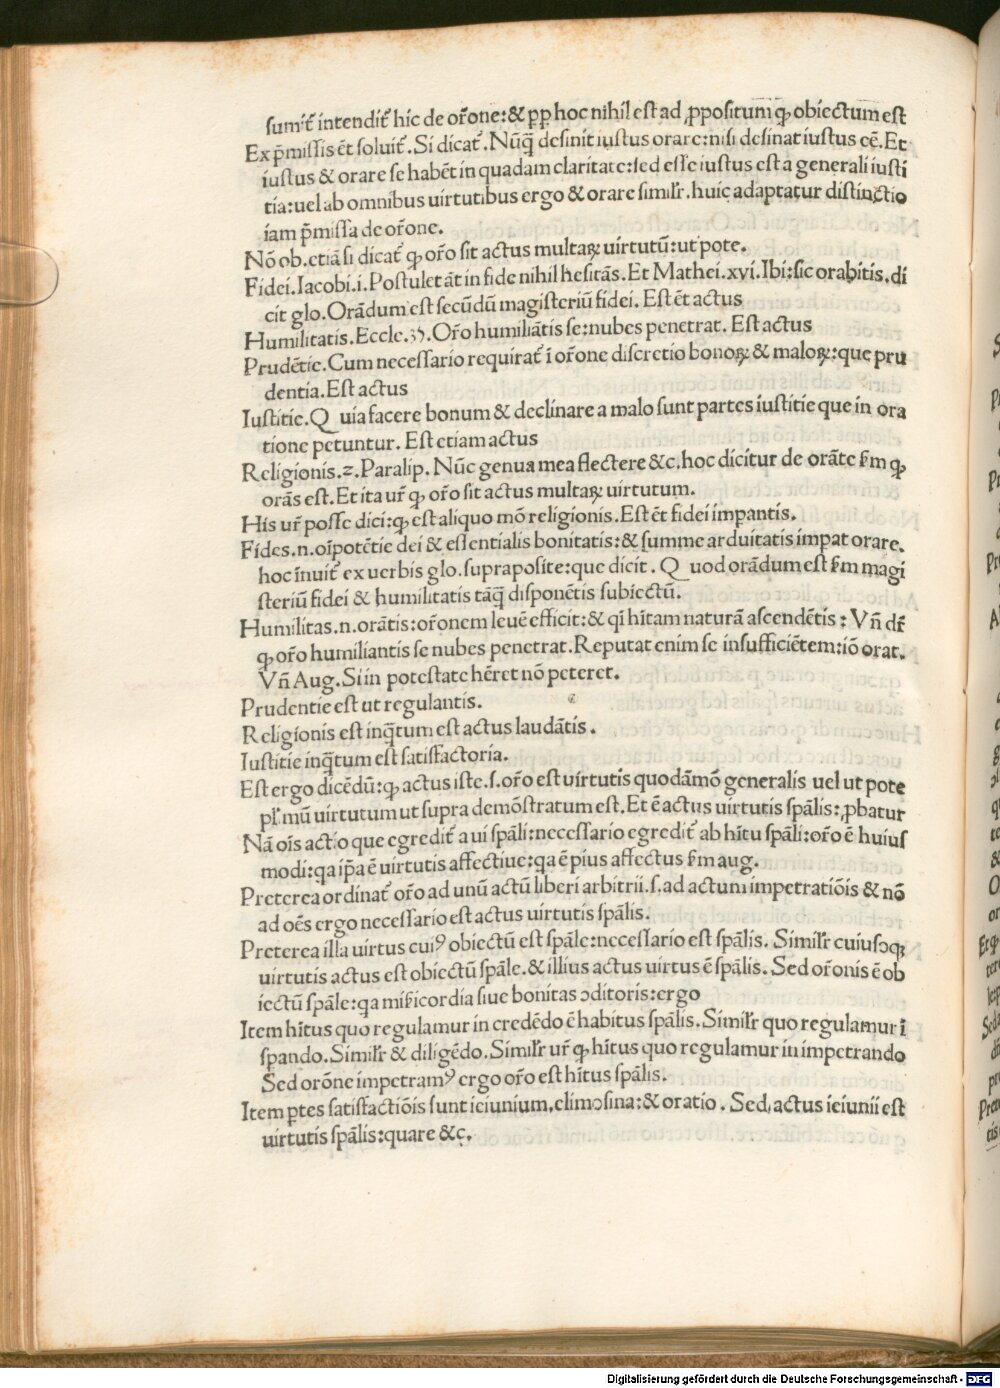 sumit̃ intendit̃ hic de or̃one:& ꝓp hoc nihil est ad ꝓpositum ꝙ obiectum est
Ex p̃missis ẽt soluit̃. Si dicat̃. Nũq̃ desinit iustus orare:nisi desinat iustus eẽ. Et
iustus & orare se habẽt in quadam claritate:sed esse iustus est a generali iusti
tia:uel ab omnibus uirtutibus ergo & orare simil̃r. huic adaptatur distinctio
iam p̃missa de or̃one.
Nõ ob. etiã si dicat̃ ꝙ or̃o sit actus multaꝝ uirtutũ:ut pote.
Fidei. Iacobi. i. Postulet ãt in fide nihil hesitãs. Et Mathei. xvi. Ibi:sic orabitis. di
cit glo. Orãdum est secũdũ magisteriũ fidei. Est ẽt actus
Humilitatis. Eccle. 35. Or̃o humiliãtis se:nubes penetrat. Est actus
Prudẽtie. Cum necessario requirat̃ ĩ or̃one discretio bonoꝝ & maloꝝ:que pru
dentia. Est actus
Iustitie. Q uia facere bonum & declinare a malo sunt partes iustitie que in ora
tione petuntur. Est etiam actus
Religionis. 2. Paralip. Nũc genua mea flectere &c. hoc dicitur de orãte ẜm ꝙ
orãs est. Et ita ur̃ ꝙ or̃o sit actus multaꝝ uirtutum.
His ur̃ posse dici:ꝙ est aliquo mõ religionis. Est ẽt fidei impantis.
Fides. n. oĩpotẽtie dei & essentialis bonitatis:& summe arduitatis impat orare.
hoc ĩnuit̃ ex uerbis glo. supraposite:que dicit. Q uod orãdum est ẜm magi
steriũ fidei & humilitatis tãq̃ disponẽtis subiectũ.
Humilitas. n. orãtis:or̃onem leuẽ efficit:& qĩ hĩtam naturã ascendẽtis: Vñ dr̃
ꝙ or̃o humiliantis se nubes penetrat. Reputat enim se insufficiẽtem:iõ orat.
Vñ Aug. Si in potestate hẽret nõ peteret.
Prudentie est ut regulantis.
Religionis est inq̃tum est actus laudãtis.
Iustitie inq̃tum est satisfactoria.
Est ergo dicẽdũ:ꝙ actus iste. s. or̃o est uirtutis quodãmõ generalis uel ut pote
pl̃mũ uirtutum ut supra demõstratum est. Et ẽ actus uirtutis sp̃alis:ꝓbatur
Nã oĩs actio que egredit̃ a ui sp̃ali:necessario egredit̃ ab hĩtu sp̃ali:or̃o ẽ huius
modi:qa ip̃a ẽ uirtutis affectiue:qa ẽ pius affectus ẜm aug.
Preterea ordinat̃ or̃o ad unũ actũ liberi arbitrii. s. ad actum impetratiõis & nõ
ad oẽs ergo necessario est actus uirtutis sp̃alis.
Preterea illa uirtus cuiꝰ obiectũ est sp̃ale:necessario est sp̃alis. Simil̃r cuiuscꝗ
uirtutis actus est obiectũ sp̃ale. & illius actus uirtus ẽ sp̃alis. Sed or̃onis ẽ ob
iectũ sp̃ale:qa mĩẜicordia siue bonitas ↄditoris:ergo
Item hĩtus quo regulamur in credẽdo ẽ habitus sp̃alis. Simil̃r quo regulamur ĩ
sperando. Simil̃r & diligẽdo. Simil̃r ur̃ ꝙ hĩtus quo regulamur in impetrando
Sed orõne impetramꝰ ergo or̃o est hĩtus sp̃alis.
Item ptes satisfactiõis sunt ieiunium. elimosina:& oratio. Sed actus ieiunii est
uirtutis sp̃alis:quare &c.
Digitalisierung gefördert durch die Deutsche Forschungsgemeinschaft - DFG